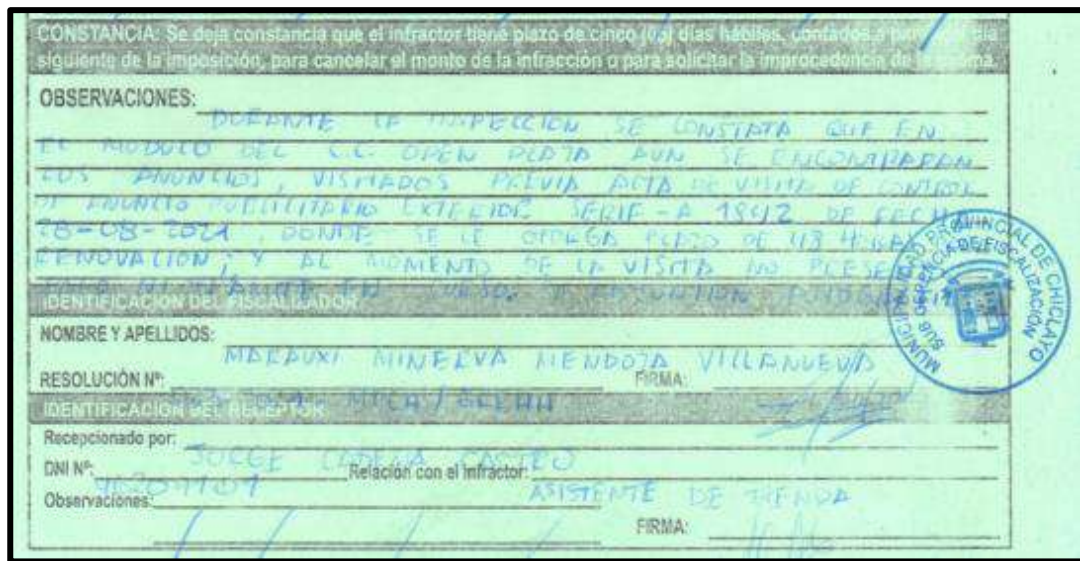 CONSTANCIA: Se deja constancia que el infractor tiene plazo de cinco (05) días hábiles, contados a
siguiente de la imposición, para cancelar el monto de la infracción o para solicitar la improcedencia de la
OBSERVACIONES:
DURANTE LA INSPECCION SE CONSTATA QUE EN
EL MODULO DEL C.C. OPEN PLAZA AUN SE ENCONTRABAN
LOS ANUNCIOS, VISITADOS PREVIA ACTA DE VISITA DE CONTROL
DE ANUNCIO PUBLICITARIO EXTERIOR SERIE - A 1842 DE FECHA
28-08-2021, DONDE SE LE OTORGA PLAZO DE 48 HORAS
RENOVACION; Y AL MOMENTO DE LA VISITA NO
NI EN
IDENTIFICACIÓN DEL FISCALIZADOR
NOMBRE Y APELLIDOS:
MARAUXI MINERVA MENDOZA VILLANUEVA
RESOLUCIÓN Nº:
FIRMA:
IDENTIFICACIÓN DEL RECEPTOR
Recepcionado por:
JORGE CASTRO
DNI Nº:
Relación con el infractor:
ASISTENTE DE TIENDA
Observaciones:
FIRMA:
MUNICIPALIDAD PROVINCIAL DE CHICLAYO
SUB GERENCIA DE FISCALIZACIÓN